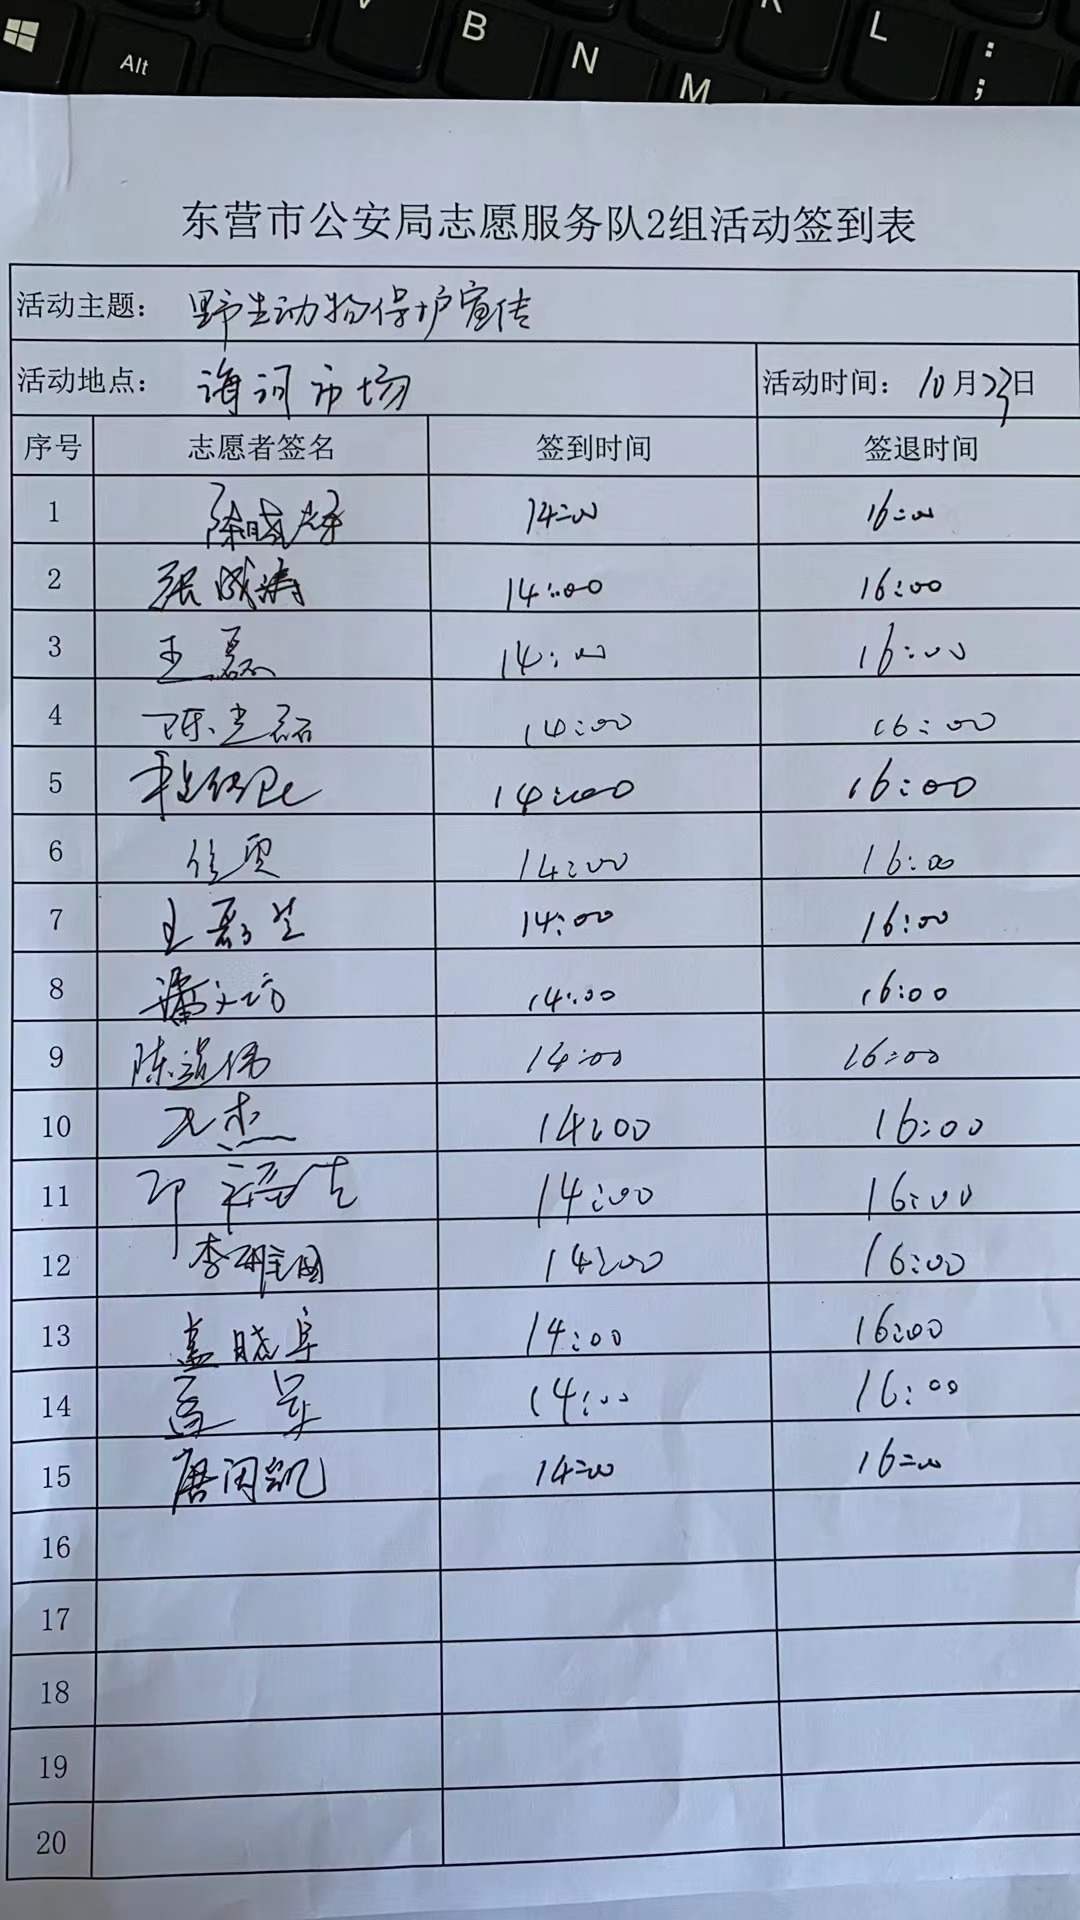 Alt
V
B
N
M
K
L
:
;
东营市公安局志愿服务队2组活动签到表
活动主题： 野生动物保护宣传
活动地点： 海河市场 活动时间：10月23日
序号 志愿者签名 签到时间 签退时间
1 14:00 16:00
2 张成涛 14:00 16:00
3 王磊 14:00 16:00
4 陈光磊 14:00 16:00
5 14:00 16:00
6 任贾 14:00 16:00
7 王磊 14:00 16:00
8 潘文 14:00 16:00
9 陈 伟 14:00 16:00
10 杰 14:00 16:00
11 14:00 16:00
12 李雅国 14:00 16:00
13 盖晓 14:00 16:00
14 14:00 16:00
15 唐闪凯 14:00 16:00
16
17
18
19
20